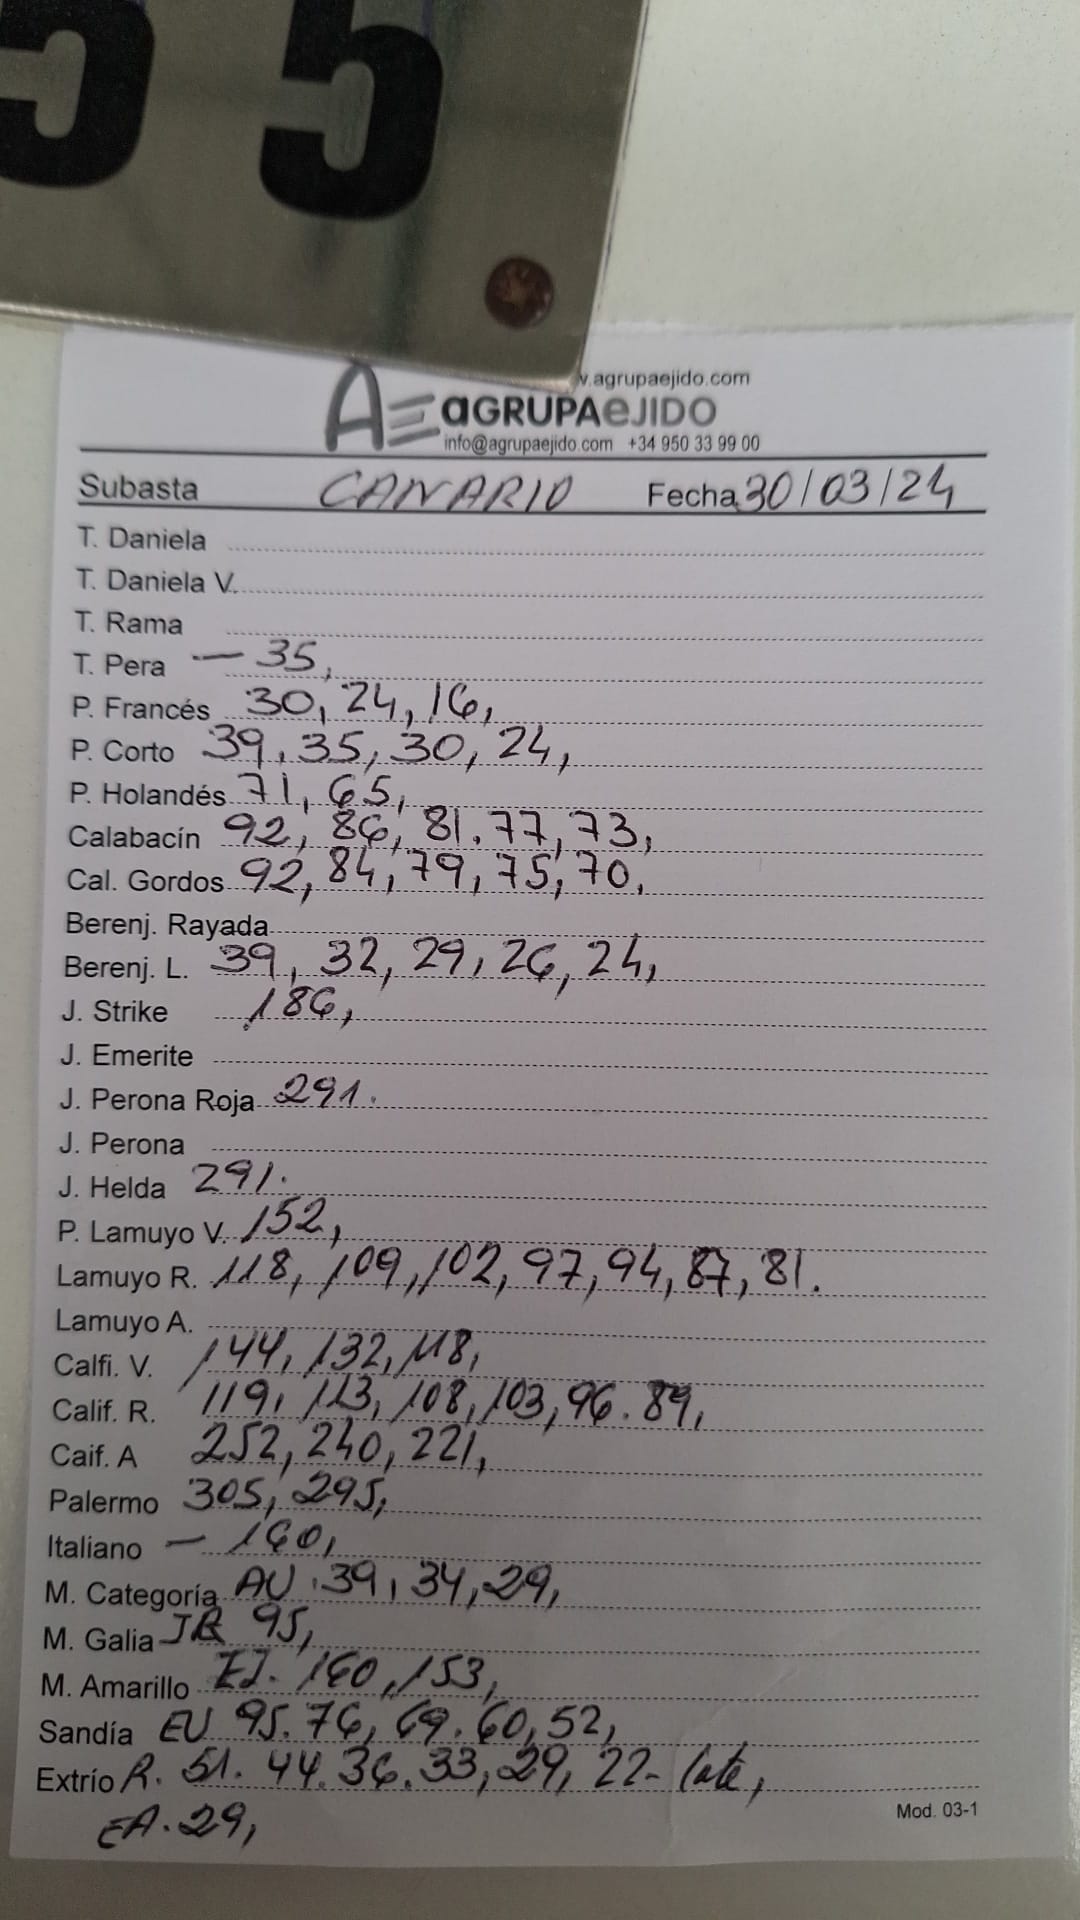 55
v.agrupaejido.com
AE aGRUPAeJIDO
info@agrupaejido.com +34 950 33 99 00
Subasta CANARIO Fecha 30/03/24
T. Daniela
T. Daniela V.
T. Rama
T. Pera — 35,
P. Francés 30, 24, 16,
P. Corto 39, 35, 30, 24,
P. Holandés 71, 65,
Calabacín 92, 86, 81. 77, 73,
Cal. Gordos 92, 84, 79, 75, 70,
Berenj. Rayada
Berenj. L. 39, 32, 29, 26, 24,
J. Strike 186,
J. Emerite
J. Perona Roja 291.
J. Perona
J. Helda 291.
P. Lamuyo V. 152,
Lamuyo R. 118, 109, 102, 97, 94, 87, 81.
Lamuyo A.
Calfi. V. 144, 132, 118,
Calif. R. 119, 113, 108, 103, 96. 89,
Caif. A 252, 240, 221,
Palermo 305, 295,
Italiano — 160,
M. Categoría AU. 39, 34, 29,
M. Galia 95,
M. Amarillo EJ. 160, 153,
Sandía EU 95. 76, 69. 60, 52,
Extrío R. 51. 44. 36. 33, 29, 22- late,
EA. 29,
Mod. 03-1